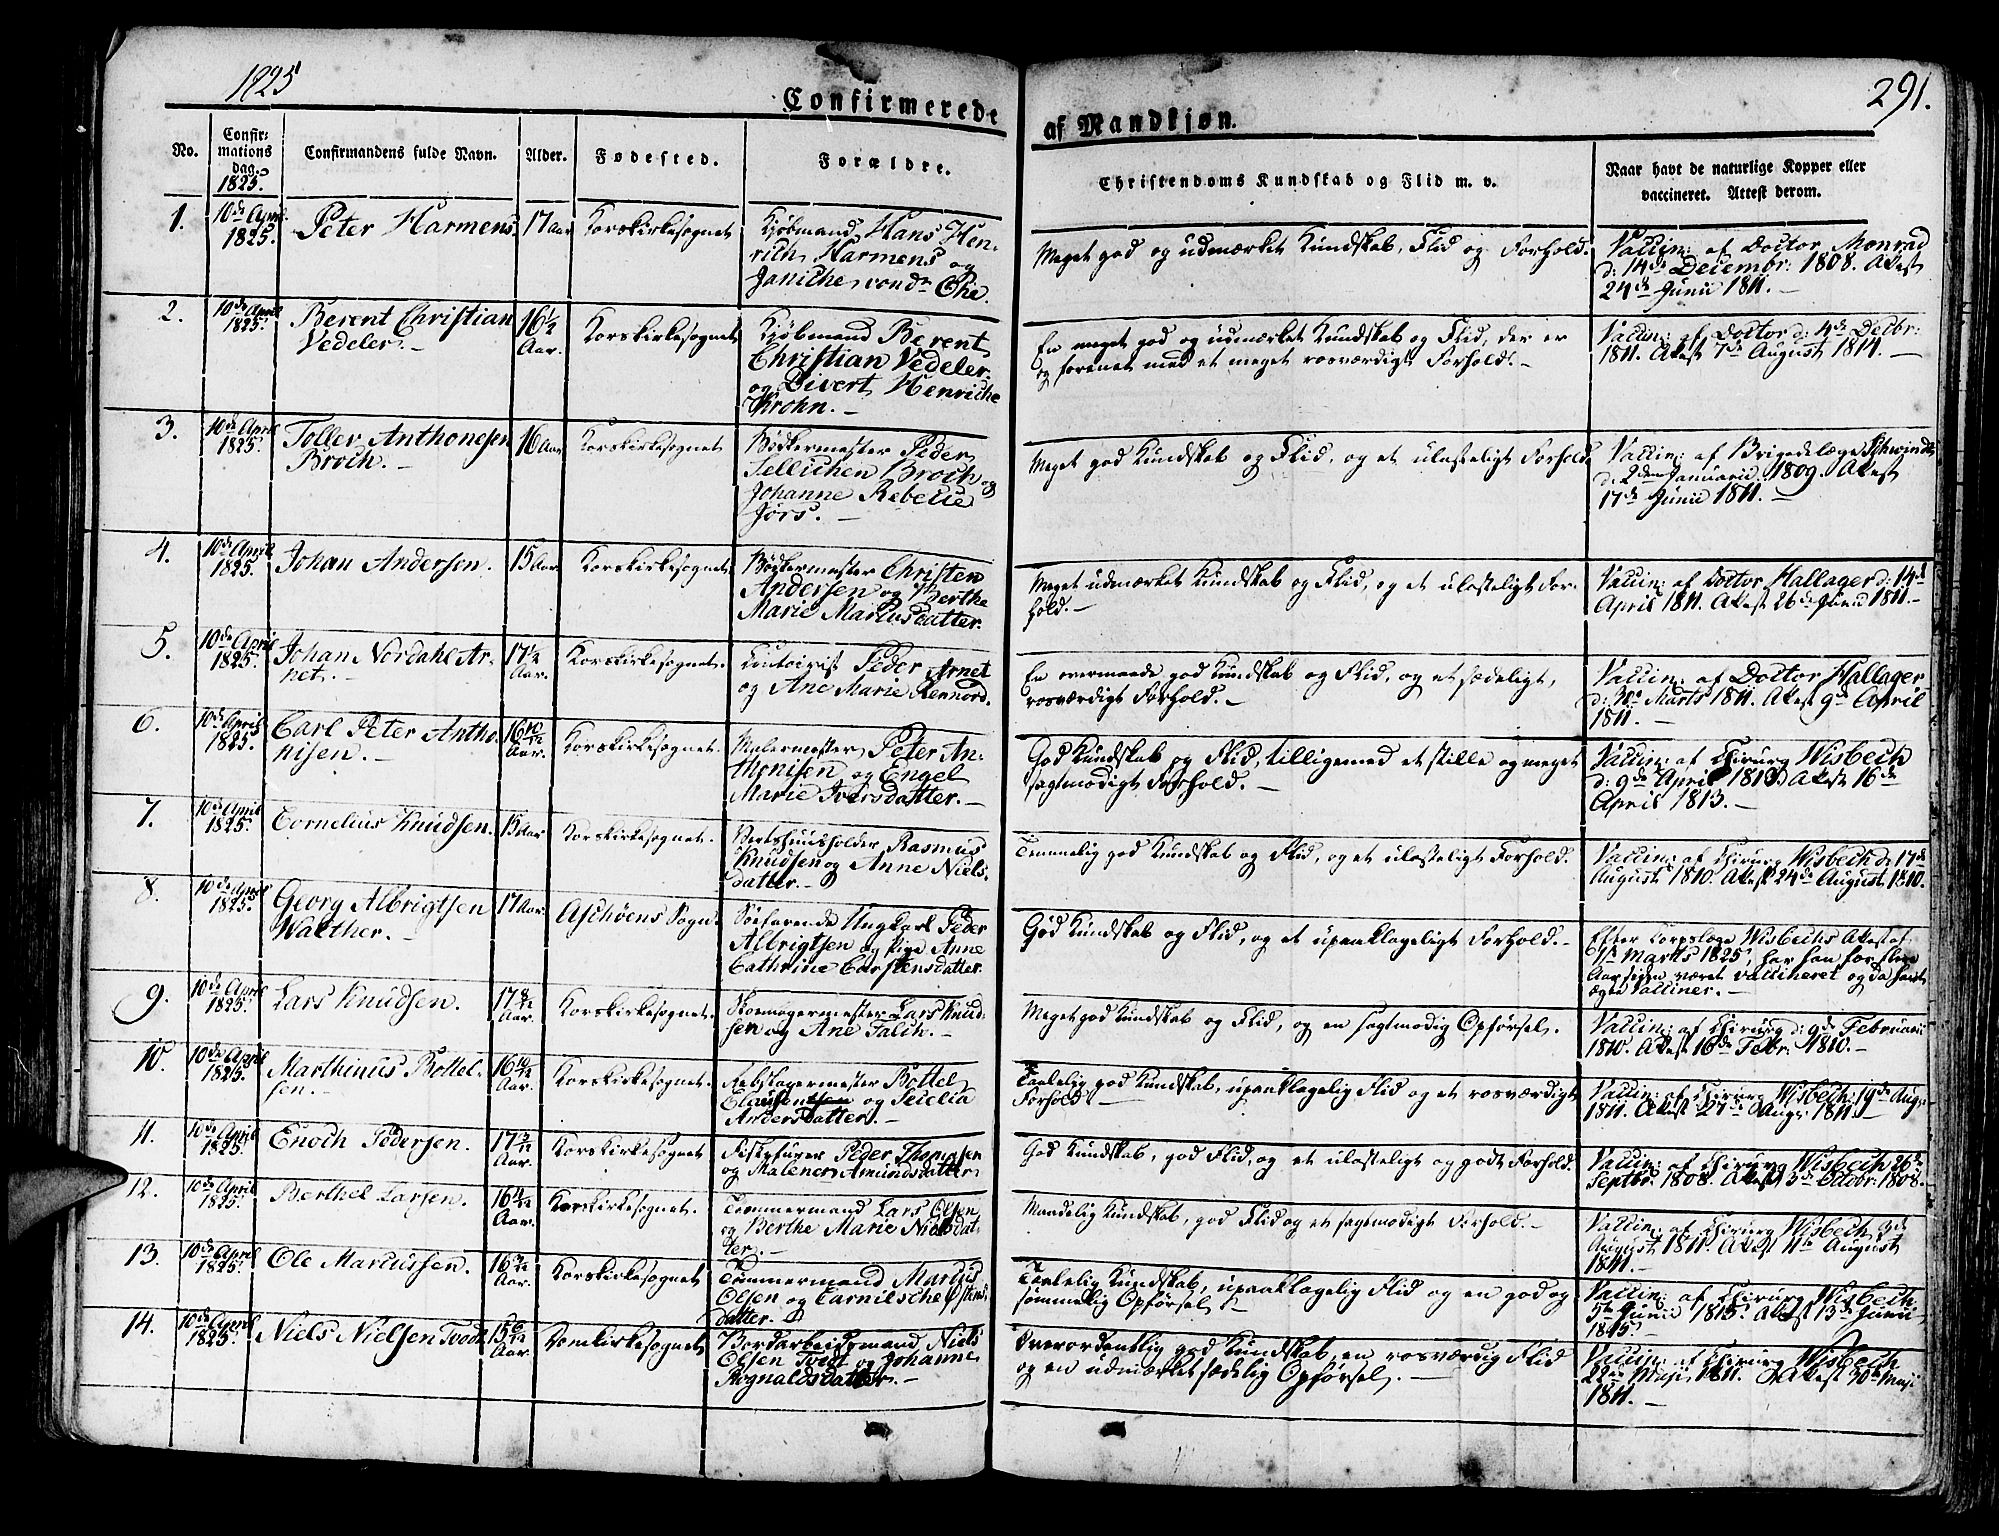 1825
Confirmerede
af Mandkjøn.
291.
No.
Confirmations dag. 1825.
Confirmandens fulde Navn.
Alder.
Fødested.
Forældre.
Christendoms Kundskab og Flid m. v.
Naar havt de naturlige Kopper eller
vaccineret. Attest derom.
1.
10de April
1825.
Peter Harmens.
17 Aar
Korskirkesognet
Kjöbmand Hans Hen-
rich Harmens og
Janiche von der Ohe.
Meget god og udmærket Kundskab, Flid og Forhold.
Vaccin: af Doctor Monrad
d: 14de Decembr: 1808. Attest
24de Junii 1811.-
2.
10de April
1825.
Berent Christian
Vedeler.-
16 1/2
Aar.
Korskirkesognet
Kjöbmand Berent
Christian Vedeler
og Divert Henriche
Krohn.-
En meget god og udmærket Kundskab og Flid, der er
og forenet med et meget rosværdigt Forhold.-
Vaccin: af Doctor d: 4de Decbr:
1811. Attest 7de August 1814.-
3.
10de April
1825.
Toller Anthonesen
Broch.-
16 Aar
Korskirkesognet
Bödkermester Peder
Sellichen Broch og
Johanne Rebecke
Jörs.-
Meget god Kundskab og Flid, og et ulasteligt Forhold.
Vaccin: af Brigadelæge Schwindt
d. 2den Januarii 1809. Attest
17de Junii 1811.-
4.
10de April
1825.
Johan Andersen.
15 Aar
Korskirkesognet.
Bödkermester Christen
Andersen og Berthe
Marie Marcusdatter.
Meget udmærket Kundskab og Flid, og et ulasteligt For-
hold.-
Vaccin: af Doctor Hallager d: 14de
April 1811. Attest 26de Junii 1811.-
5.
10de April
1825.
Johan Nordahl Ar-
net.-
17 1/2
Aar.
Korskirkesognet.
Contoirist Peder Arnet
og Ane Marie Rennord.
En overmaade god Kundskab og Flid, og et sædeligt,
rosværdigt Forhold.-
Vaccin: af Doctor Hallager
d: 30te Marts 1811. Attest 9de April
1811.-
6.
10de April
1825.
Carl Peter Antho-
nisen.-
16 10/12
Aar.
Korskirkesognet.
Malermester Peter An-
thonisen og Engel
Marie Iversdatter.-
God Kundskab og Flid, tilligemed et stille og meget
sagtmodigt Forhold.-
Vaccin: af Chirurg Wisbech
d: 9de April 1813. Attest 16de
April 1813.-
7.
10de April
1825.
Cornelius Knudsen.
15 Aar
Korskirkesognet.
Vertshuusholder Rasmus
Knudsen og Anne Niels-
datter.-
Temmelig god Kundskab og Flid, og et ulasteligt Forhold.
Vaccin: af Chirurg Wisbech d: 17de
August 1810. Attest 24de August 1810.
8.
10de April
1825.
Georg Albrigtsen
Walther.-
17 Aar.
Aschöens Sogn.
Söefarende Ungkarl Peder
Albrigtsen og Pige Anne
Cathrine Carstensdatter.
God Kundskab og Flid, og et upaaklageligt Forhold.-
Efter Corpslæge Wisbechs Attest af
1ste Marts 1825, har han for flere
Aar siden været vaccineret og da havt
ægte Vacciner.-
9.
10de April
1825.
Lars Knudsen.
17 8/12
Aar.
Korskirkesognet.
Skoemagermester Lars Knud-
sen og Ane Falch.-
Meget god Kundskab og Flid, og en sagtmodig Opförsel.
Vaccin: af Chirurg d: 9de Februarii
1810. Attest 16de Febr: 1810.-
10.
10de April
1825.
Marthinus Bottel-
sen.-
16 10/12
Aar.
Korskirkesognet.
Rebslagermester Bottel
Clausen og Secelia
Andersdatter.-
Taalelig god Kundskab, upaaklagelig Flid og et rosværdigt
Forhold.-
Vaccin: af Chirurg Wisbech 19de Aug:
1811. Attest 27de Aug: 1811.-
11.
10de April
1825.
Enoch Pedersen.
17 5/12
Aar.
Korskirkesognet
Fiskefører Peder Thomesen
og Malene Amundsdatter
God Kundskab, god Flid, og et ulasteligt og godt Forhold.
Vaccin: af Chirurg Wisbech 26de
Septbr: 1808. Attest 3de Octobr: 1808.
12.
10de April
1825.
Berthel Larsen.
16 4/12
Aar.
Korskirkesognet.
Tømmermand Lars Olsen
og Berthe Marie Nielsdat-
ter.-
Maadelig Kundskab, god Flid og et sagtmodigt Forhold.-
Vaccin: af Chirurg Wisbech 3de
August 1811. Attest 11te August
1811.-
13.
10de April
1825.
Ole Marcussen.
16 3/12
Aar.
Korskirkesognet
Tømmermand Marcus
Olsen og Carnilsche
datter.
Taalelig Kundskab, upaaklagelig Flid og en god og
sömmelig Opförsel.-
Vaccin: af Chirurg Wisbech
5te Junii 1815. Attest 13de Junii
1815.-
14.
10de April
1825.
Niels Nielsen Tvedt
15 6/12
Aar.
Domkirkesognet
Bordarbeidsmand Niels
Olsen Tvedt og Johanne
Rognaldsdatter.-
Overordentlig god Kundskab, en rosværdig Flid
og en udmærket sædelig Opförsel.-
Vaccin: af Chirurg Wisbech
22de Maji 1811. Attest 30te Maji
1811.-